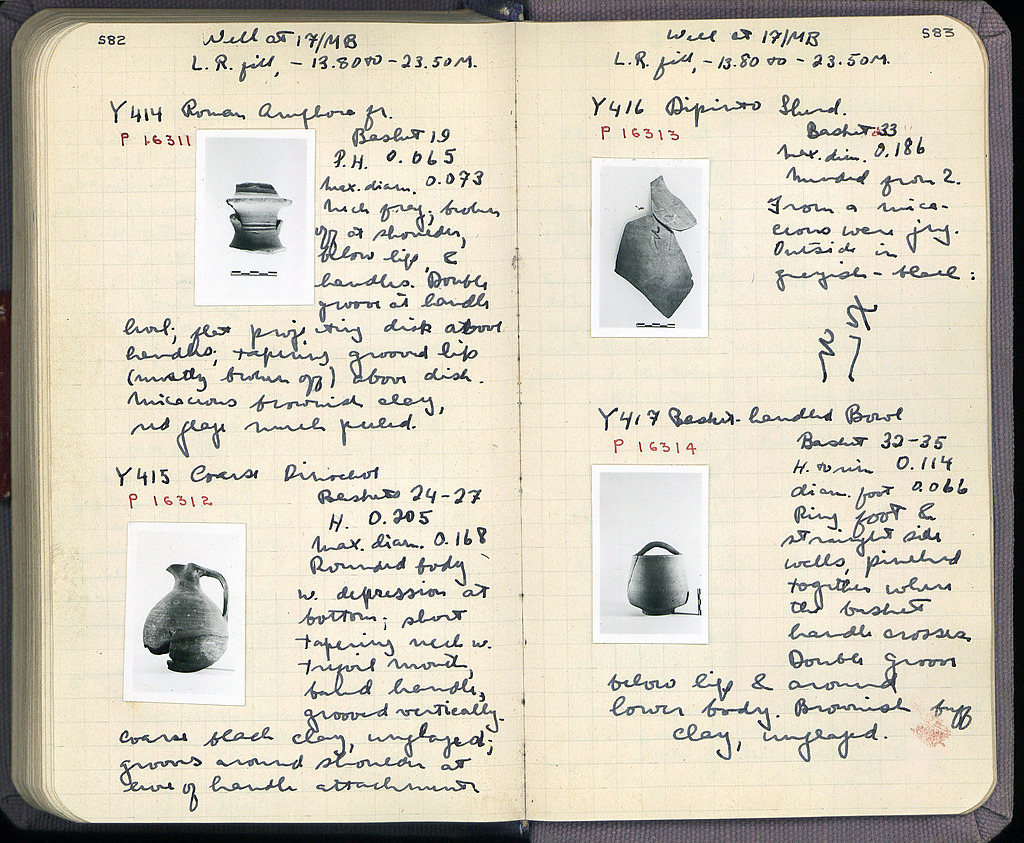 582
Well at 17/MB
L. R. fill, - 13.80 to - 23.50 M.
Y414 Roman Amphora fr.
P 16311
Basket 19
P.H. 0.065
Max. diam. 0.073
Neck frag; broken
off at shoulder,
below lip &
handles. Double
groove at handle
level; flat projecting disk above
handles; tapering grooved lip
(mostly broken off) above disk.
Micacious brownish clay,
red glaze much peeled.
Y415 Coarse Oinochoe
P 16312
Baskets 24-27
H. 0.205
Max. diam. 0.168
Rounded body
w. depression at
bottom; short
tapering neck w.
trefoil mouth,
band handle,
grooved vertically.
Coarse black clay, unglazed;
grooves around shoulder at
level of handle attachment
583
Well at 17/MB
L. R. fill, - 13.80 to - 23.50 M.
Y416 Dipinto Sherd.
P 16313
Basket 33
Max. dim. 0.186
Mended from 2.
From a mica-
cious ware jug.
Outside in
greyish-black:
Y417 Basket-handled Bowl
P 16314
Basket 32-35
H. to rim 0.114
diam. foot 0.066
Ring foot &
straight side
walls, pinched
together where
the basket
handle crosses
Double groove
below lip & around
lower body. Brownish buff
clay, unglazed.